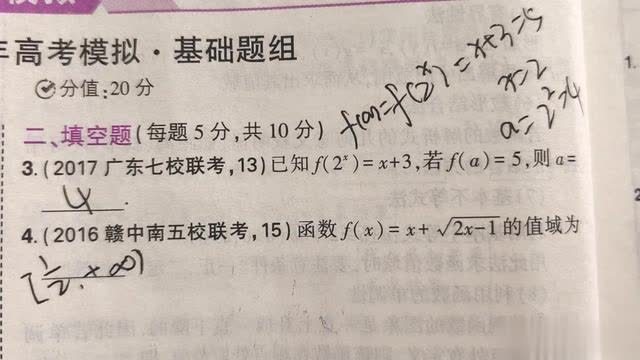 年高考模拟·基础题组
分值:20分
f(a)=f(2^x)=x+3=5
x=2
a=2^2=4
二、填空题(每题5分,共10分)
3.(2017广东七校联考,13)已知f(2^x)=x+3,若f(a)=5,则a=
4.
4.(2016赣中南五校联考,15)函数f(x)=x+√(2x-1)的值域为
[1/2,+∞)